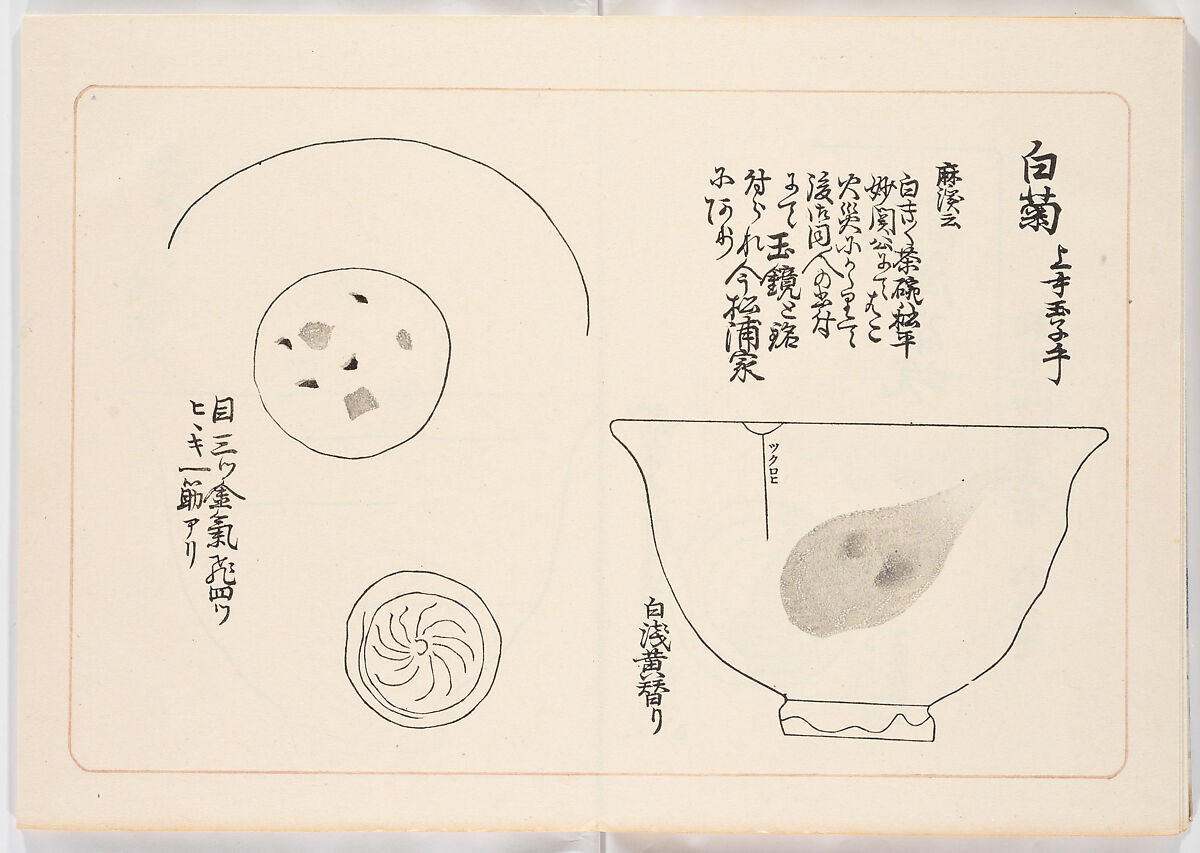 白菊 上手玉子手
麻溪云
白きく茶碗松平
妙関公にて
火災にかゝりて
後 同人の書付
にて玉鏡と銘
付られ今松浦家
にあり
ツクロヒ
白浅黄替り
目三ツ金氣飛四ツ
ヒヾキ一筋アリ